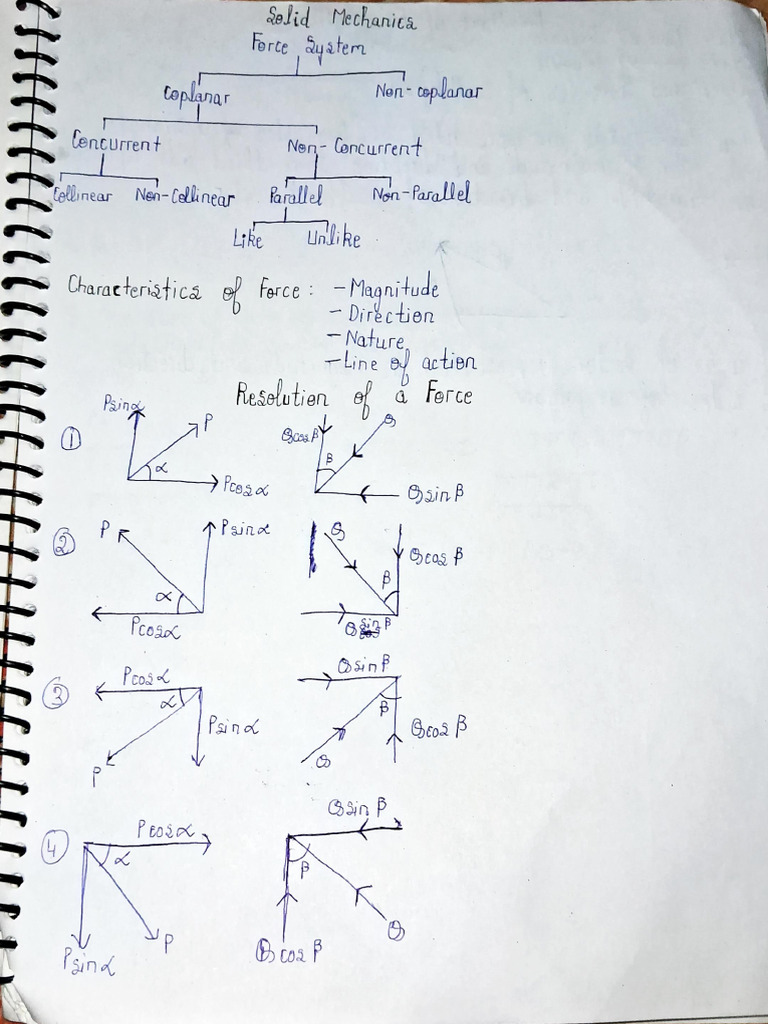 Solid Mechanics
Force System
Coplanar Non-coplanar
Concurrent Non-Concurrent
Collinear Non-Collinear Parallel Non-Parallel
Like Unlike
Characteristics of Force : - Magnitude
- Direction
- Nature
- Line of action
Resolution of a Force
① Psinα P α Pcosα Qcosβ β Q Qsinβ
② P Psinα α Pcosα Q Qcosβ β Qsinβ
③ Pcosα α Psinα P Qsinβ β Qcosβ Q
④ Pcosα α P Psinα Qsinβ β Q Qcosβ